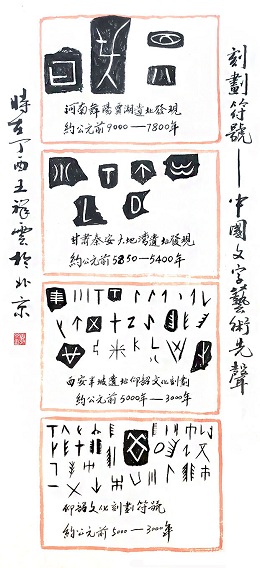 刻劃符號——中國文字藝術先聲
河南舞陽賈湖遺址發現
約公元前9000—7800年
甘肅秦安大地灣遺址發現
約公元前5850—5400年
西安半坡遺址仰韶文化刻劃
約公元前5000年—3000年
仰韶文化刻劃符號
約公元前5000—3000年
時在丁酉王祥雲於北京